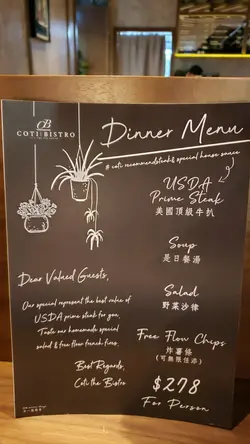 CB
COTI BISTRO
Dinner Menu
# coti recommendsteak& special house sauce
USDA
Prime Steak
美國頂級牛扒
Soup
是日餐湯
Salad
野菜沙律
Free Flow Chips
炸薯條
(可無限任添)
$278
For Person
Dear Valued Guests,
Our special represent the best value of
USDA prime steak for you.
Taste our homemade special
salad & free flow french fries.
Best Regards,
Coti the Bistro